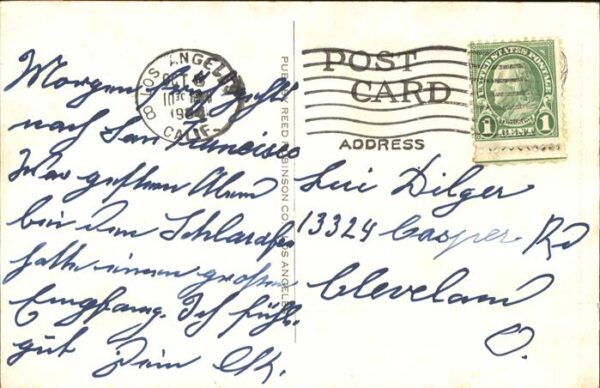 Morgen früh geht's
nach San Francisco
War gestern Abend
bei den Schlaraffen
hatte einen großen
Empfang. Ich fühl.
gut Dein
LOS ANGELES
OCT
1934
CALIF.
8
PUB. BY REED ROBINSON CO. LOS ANGELES
POST
CARD
ADDRESS
UNITED STATES POSTAGE
1 CENT 1
Dilger
13324 Casper Rd
Cleveland
O.